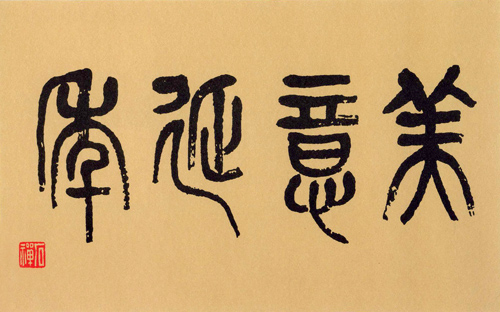 美意延年
石禪